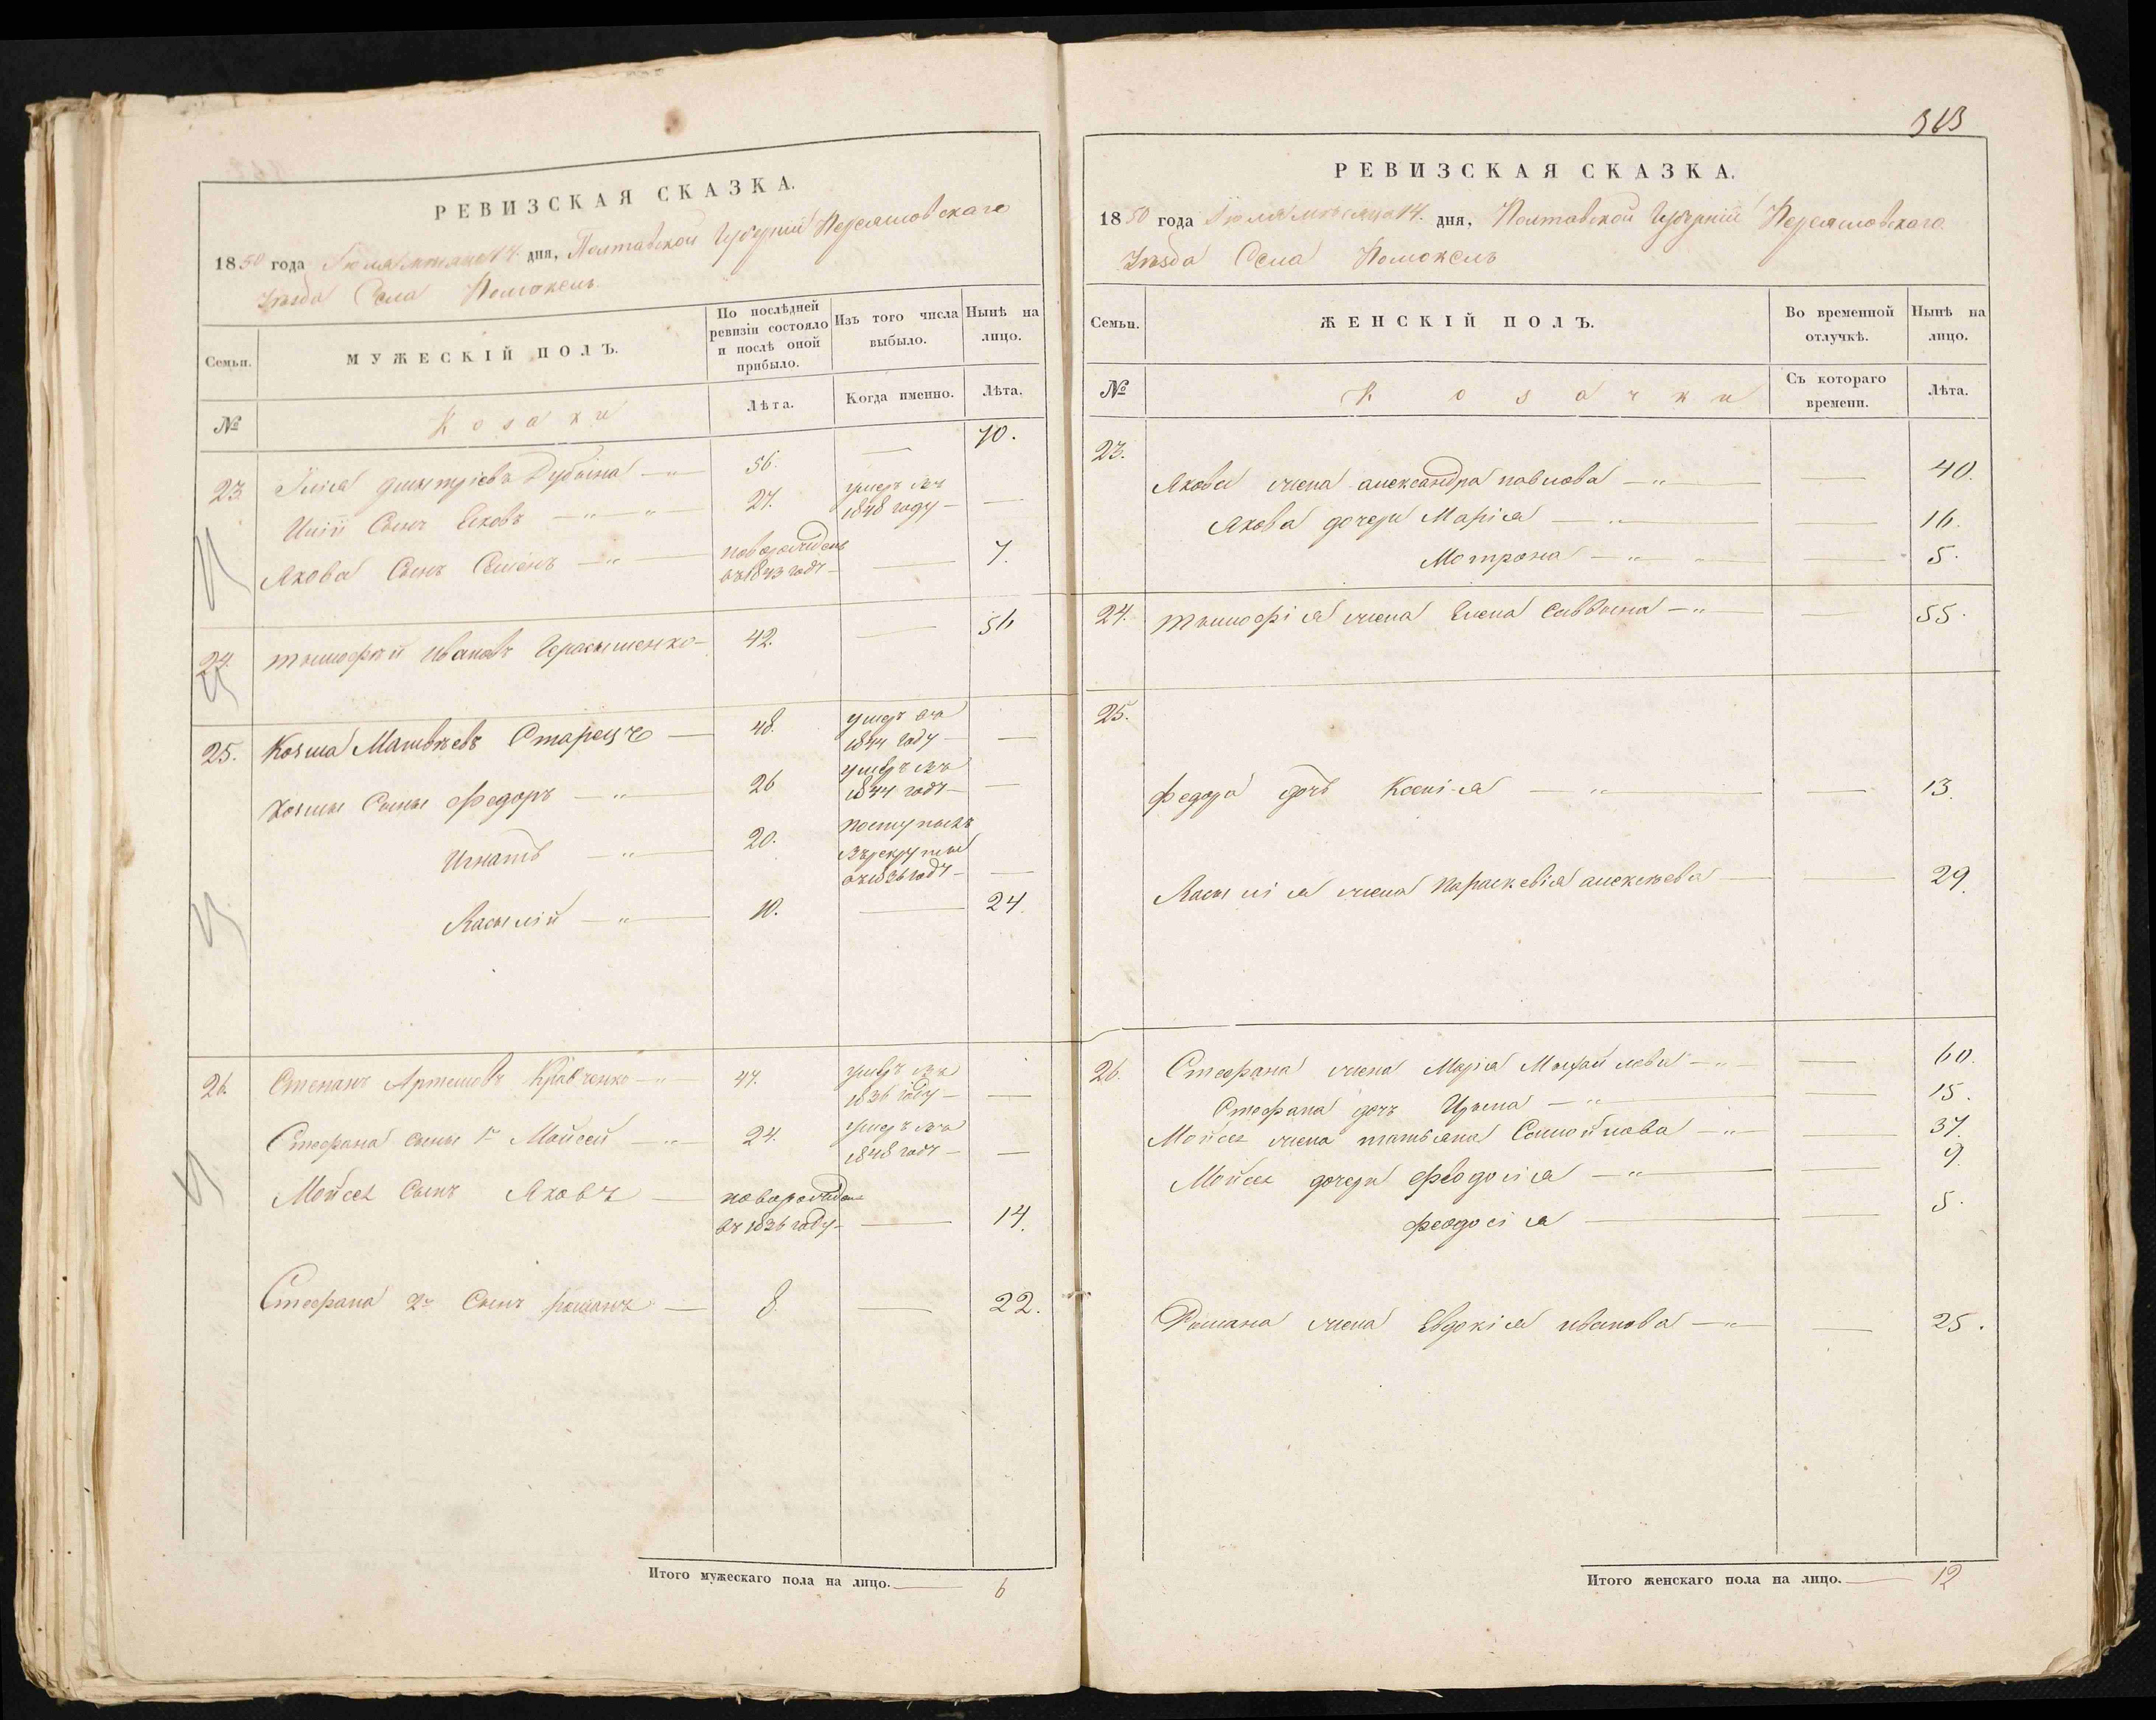 РЕВИЗСКАЯ СКАЗКА.
1850 года Іюля мѣсяца 14. дня, Полтавской Губерніи Переяславскаго
Уѣзда Села Помоклъ
Семьи.
МУЖЕСКІЙ ПОЛЪ.
По послѣдней ревизіи состояло и послѣ оной прибыло.
Изъ того числа выбыло.
Нынѣ на лицо.
№
Козаки
Лѣта.
Когда именно.
Лѣта.
23 Илія Дмытріевъ Дубына 56. — 70.
Иліи Сынъ Яковъ 27. умеръ въ 1848 году —
Якова Сынъ Семенъ новорожденъ въ 1843 году — 7.
24. тымофѣй Ивановъ Герасыменко 42. — 56
25. Козма Матвѣевъ Старецъ 48. умеръ въ 1844 году —
Козмы Сыны Федоръ 26 умеръ въ 1844 году —
Игнатъ 20. поступылъ въ рекруты въ 1836 году —
Васылій 10. — 24.
26. Степанъ Артемовъ Кравченко 47. умеръ въ 1836 году —
Стефана сыны 1й Мойсей 24. умеръ въ 1848 году —
Мойсея Сынъ Яковъ новорожденъ въ 1836 году — 14.
Стефана 2й Сынъ романъ 8. — 22.
Итого мужескаго пола на лицо. 6
363
РЕВИЗСКАЯ СКАЗКА.
1850 года Іюля мѣсяца 14. дня, Полтавской Губерніи Переяславскаго
Уѣзда Села Помоклъ
Семьи.
ЖЕНСКІЙ ПОЛЪ.
Во временной отлучкѣ.
Нынѣ на лицо.
№
Козачки
Съ котораго времени.
Лѣта.
23. Якова жена александра павлова — 40.
Якова дочери Марія — 16.
Мотрона — 5.
24. тымофія жена Елена Саввына 55.
25.
Федора дочь Ксенія — 13.
Васылія жена параскевія алексѣева — 29.
26. Стефана жена Марія Мыхайлева — 60.
Стефана дочь Ирына — 15.
Мойсея жена татьяна Самойлова — 37.
Мойсея дочери Феодосія — 9.
феодосія — 5.
Романа жена Евдокія иванова — 25.
Итого женскаго пола на лицо. 12